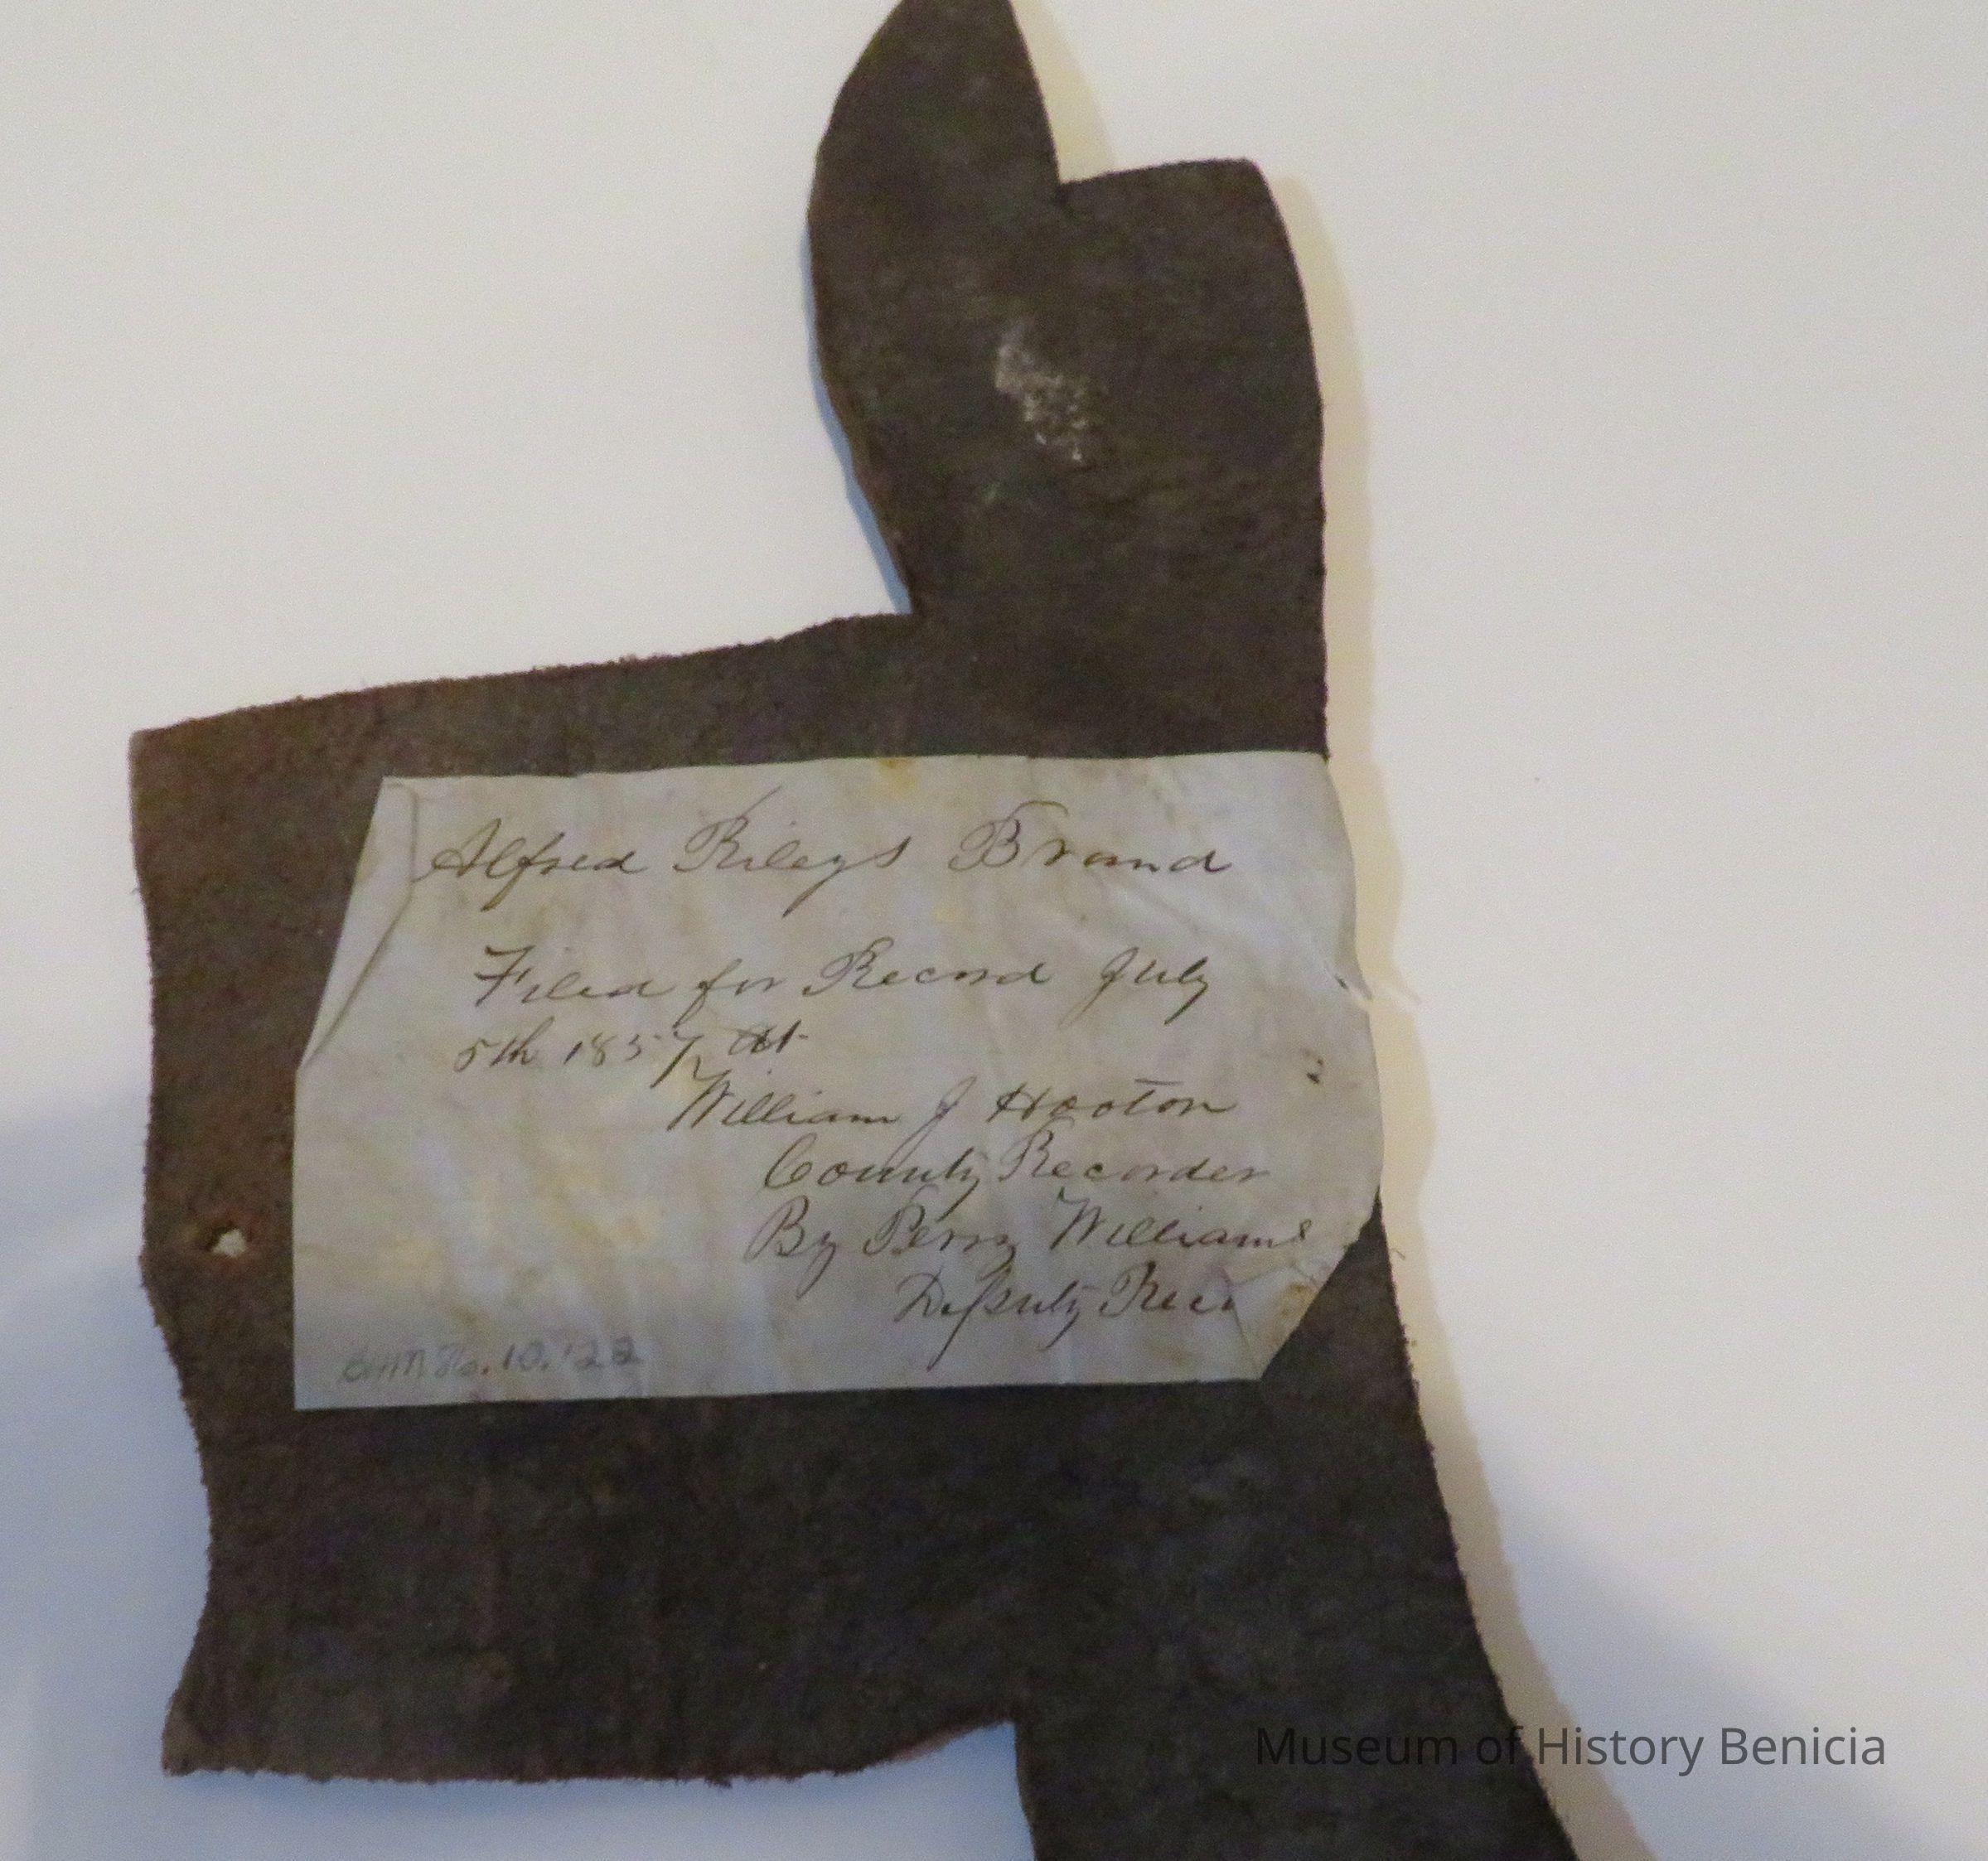 Alfred Rileys Brand
Filed for Record July
5th 1857 At
William J Hooton
County Recorder
By Perry Williams
Deputy Rec
BHM 86.10.'22
Museum of History Benicia